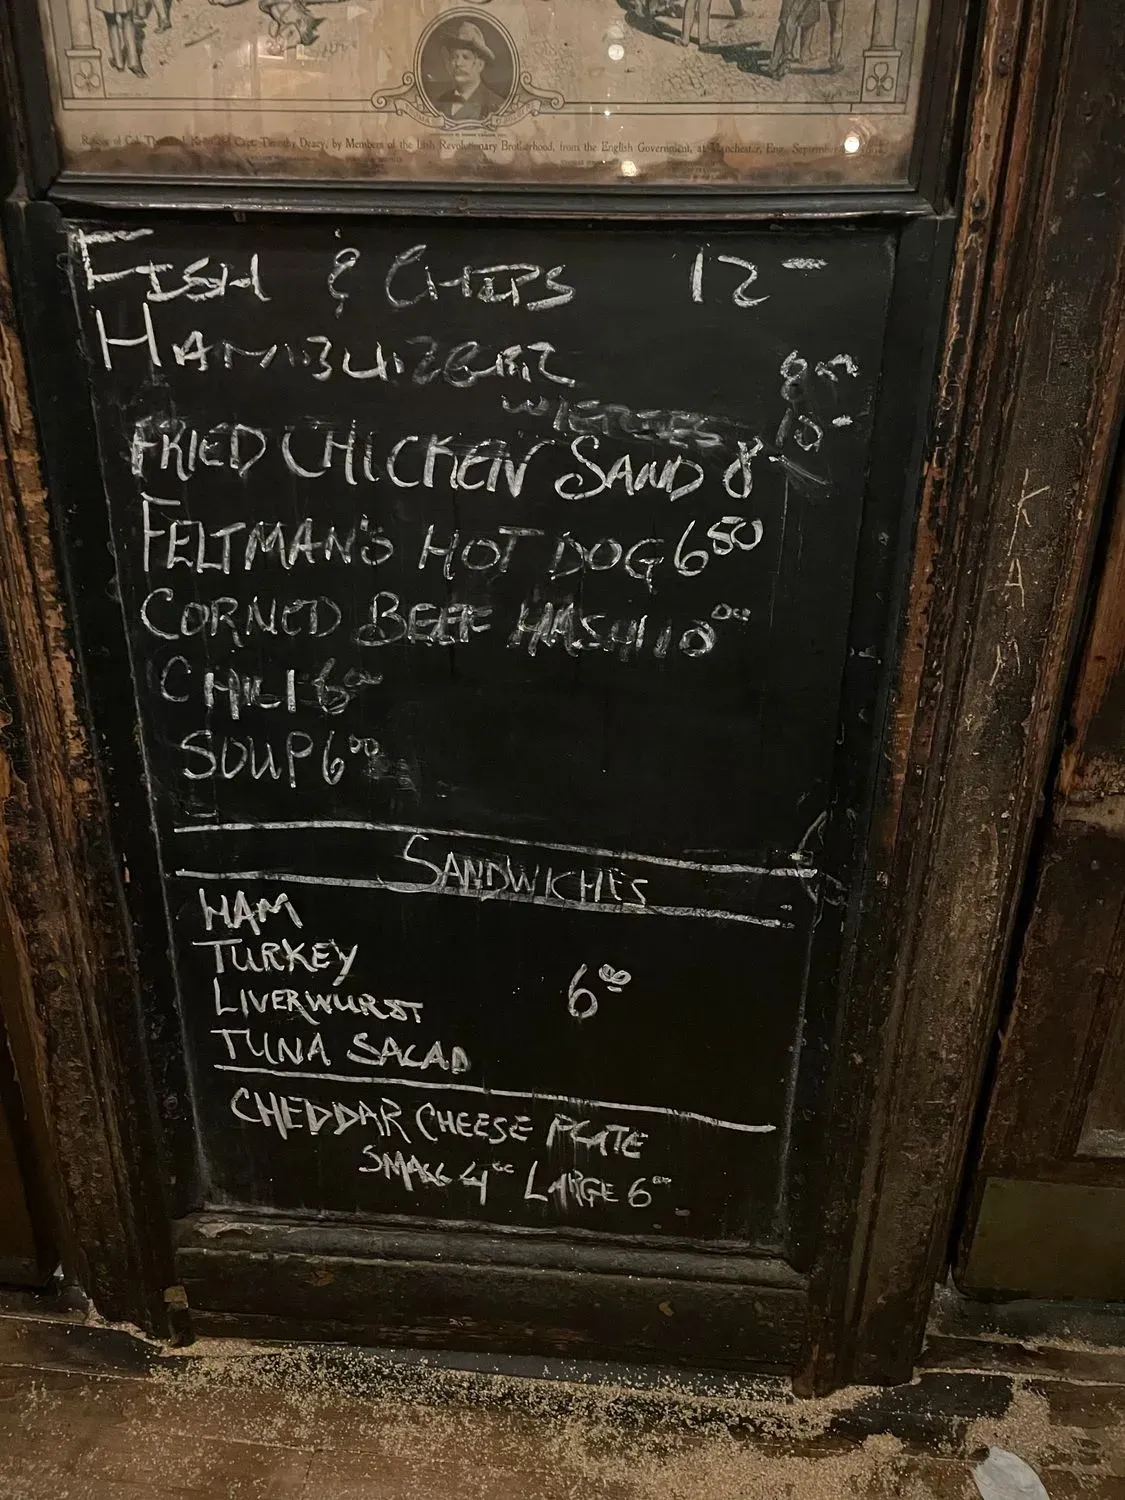 Rescue of Col. Thomas J. Kelly and Capt. Timothy Deasy, by Members of the Irish Revolutionary Brotherhood, from the English Government, at Manchester, Eng., September
FISH & CHIPS 12 –
HAMBURGER 8⁰⁰
10 –
FRIED CHICKEN SAND 8 –
FELTMAN'S HOT DOG 6⁵⁰
CORNED BEEF HASH 10⁰⁰
CHILI 6⁰⁰
SOUP 6⁰⁰
SANDWICHES
HAM
TURKEY
LIVERWURST 6⁰⁰
TUNA SALAD
CHEDDAR CHEESE PLATE
SMALL 4⁰⁰ LARGE 6⁰⁰
KAM